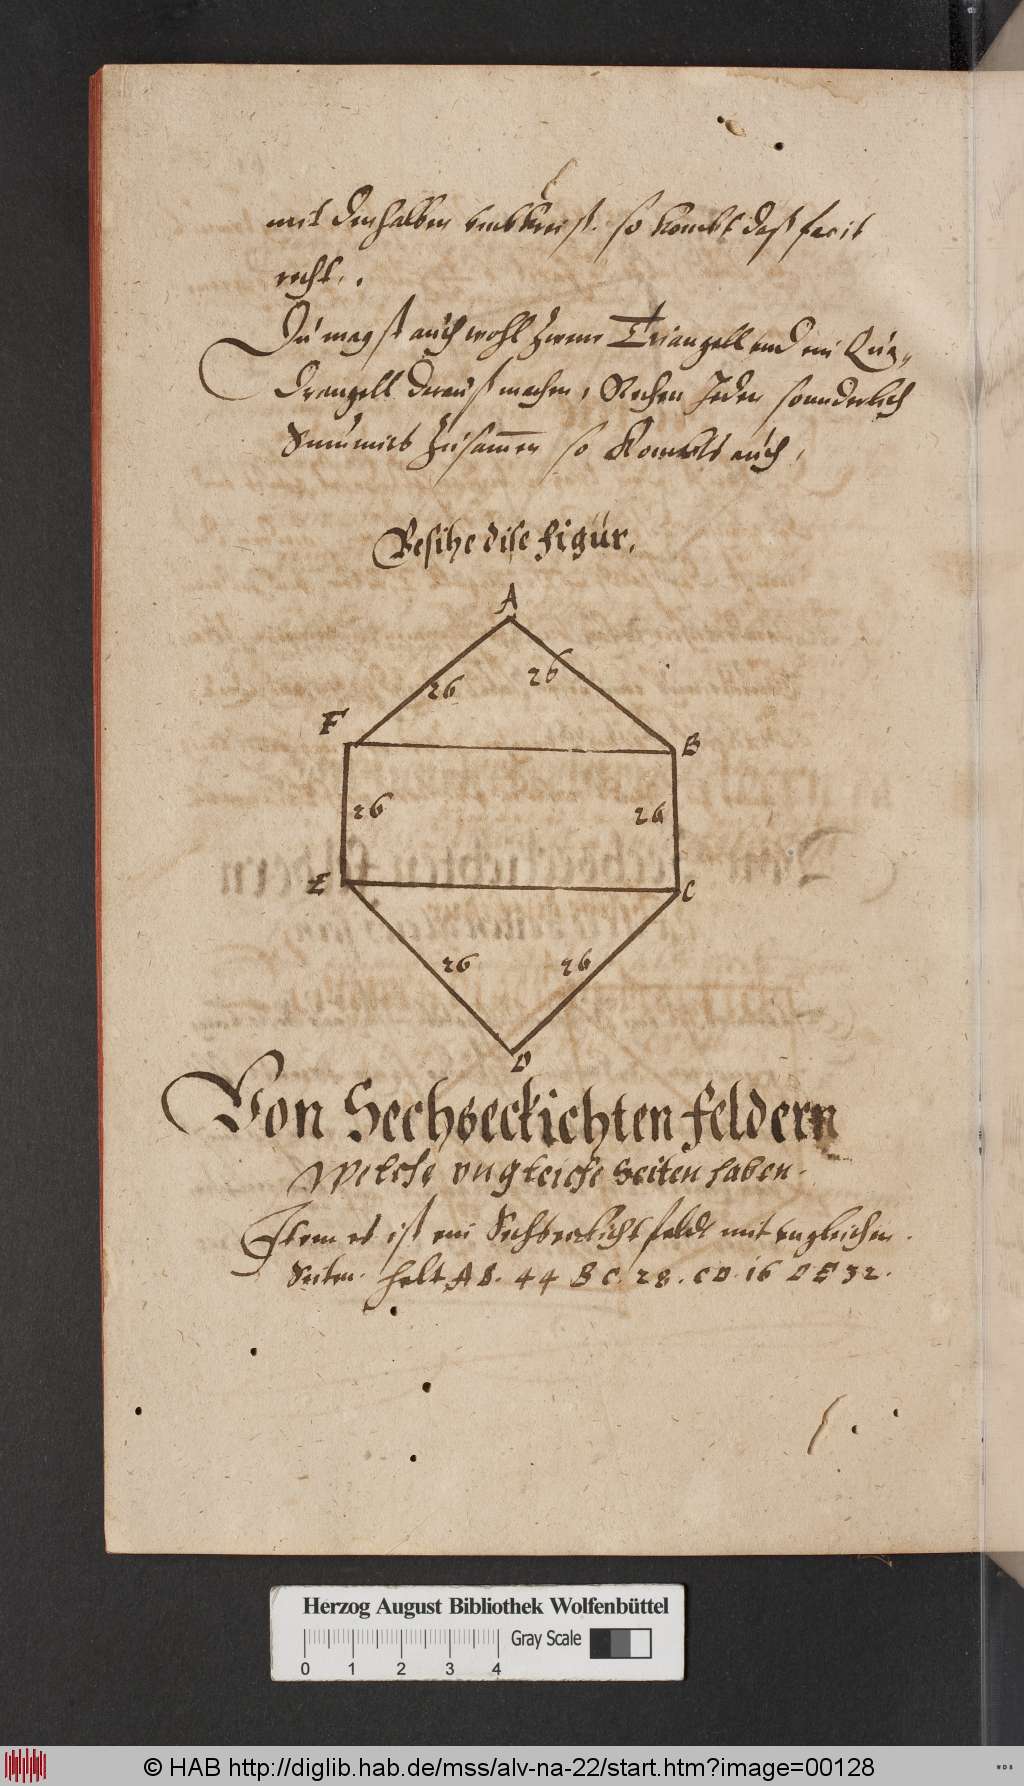 mit den halben umbkreiß. so kombt daß facit
recht.
Du magst auch wohl zween Triangell und ein Qua-
drangell darauß machen, Rechen Jeden sonnderlich
Summirs zusamen so kombts auch,
Besihe dise figur.
A
26 26
F B
26 26
E C
26 26
D
Von Sechseckichten feldern
Welche ungleiche seiten haben.
Item es ist ein Sechseckicht feldt mit ungleichen
Seiten. helt AB. 44 BC. 28. CD. 16 DE 32.
Herzog August Bibliothek Wolfenbüttel
Gray Scale
0 1 2 3 4
© HAB http://diglib.hab.de/mss/alv-na-22/start.htm?image=00128